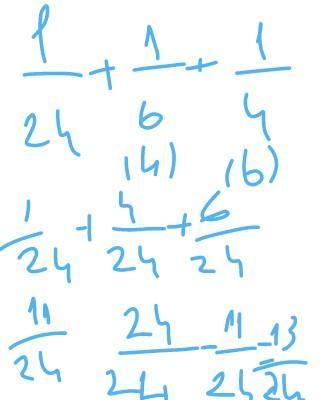 1/24 + 1/6 + 1/4
(4) (6)
1/24 + 4/24 + 6/24
11/24 24/24 - 11/24 = 13/24